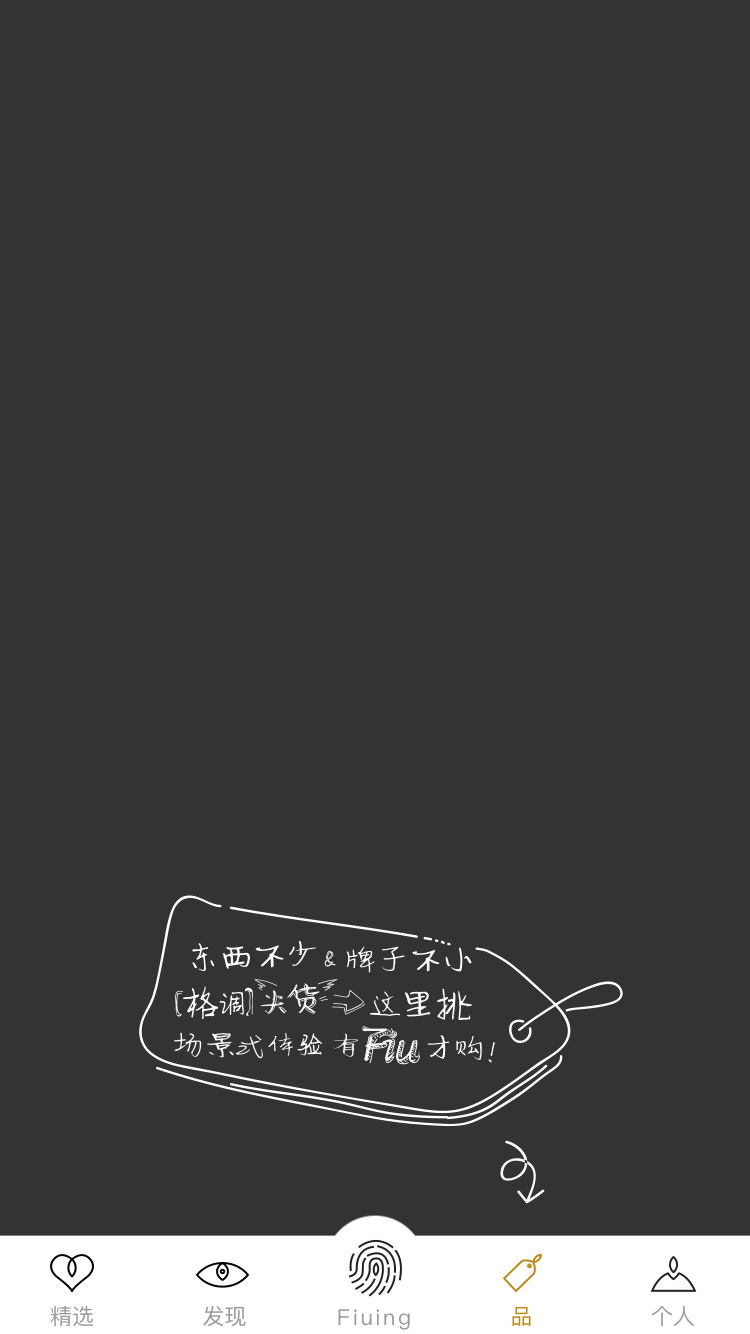 东西不少&牌子不小
[格调]尖货⇨这里挑
场景式体验 有Fiu才购!
精选
发现
Fiuing
品
个人